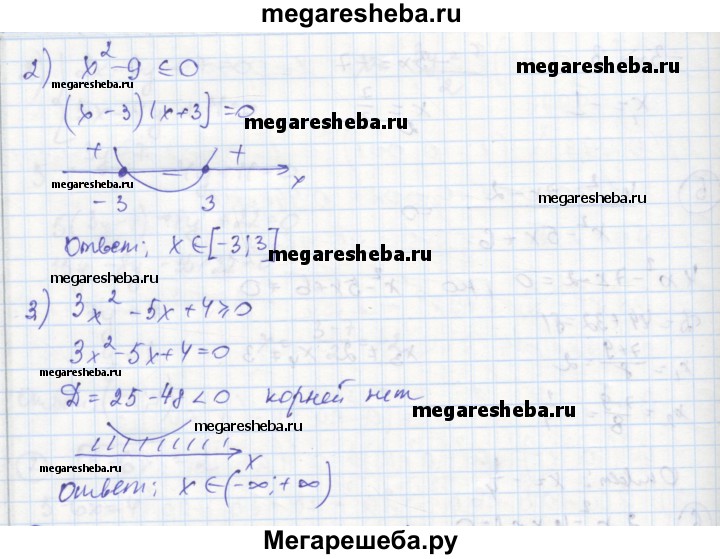 megaresheba.ru
2) x² - 9 ≤ 0
megaresheba.ru
(x - 3)(x + 3] = 0
megaresheba.ru
+ - + x
megaresheba.ru
-3 3
Ответ: x ∈ [-3; 3]
megaresheba.ru
megaresheba.ru
3) 3x² - 5x + 4 ≥ 0
megaresheba.ru
3x² - 5x + 4 = 0
megaresheba.ru
Д = 25 - 48 < 0 корней нет
megaresheba.ru
megaresheba.ru
x
megaresheba.ru
Ответ: x ∈ (-∞; +∞)
megaresheba.ru
Мегарешеба.ру